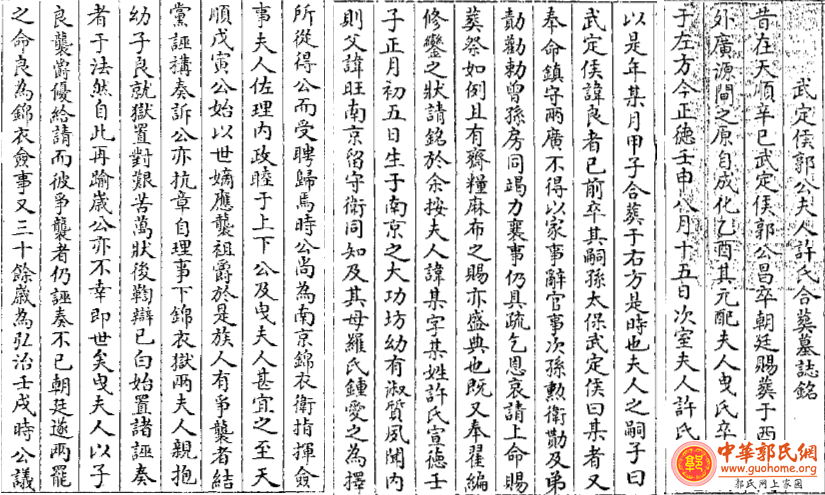 武定侯郭公夫人許氏合葬墓誌銘
昔在天順辛巳武定侯郭公昌卒朝廷賜葬于西
外廣源閘之原自成化乙酉其元配夫人曳氏卒
于左方今正德壬申八月十五日次室夫人許氏
以是年某月甲子合葬于右方是時也夫人之嗣子曰
武定侯諱良者已前卒其嗣孫太保武定侯曰某者又
奉命鎮守兩廣不得以家事辭官事次孫勲衛勛及弟
勣勸勅曾孫房同竭力襄事仍具疏乞恩哀請上命賜
葬祭如例且有齋糧麻布之賜亦盛典也既又奉翟編
修鑾之狀請銘於余按夫人諱某字某姓許氏宣德壬
子正月初五日生于南京之大功坊幼有淑質夙聞內
則父諱旺南京留守衛同知及其母羅氏鍾愛之為擇
所從得公而受聘歸焉時公尚為南京錦衣衛指揮僉
事夫人佐理內政睦于上下公及曳夫人甚宜之至天
順戊寅公始以世嫡應襲祖爵於是族人有爭襲者結
黨誣搆奏訴公亦抗章自理事下錦衣獄兩夫人親抱
幼子良就獄置對艱苦萬狀後鞫辯已白始置諸誣奏
者于法然自此再踰歲公亦不幸即世矣曳夫人以子
良襲爵優給請而彼爭襲者仍誣奏不已朝廷遂兩罷
之命良為錦衣僉事又三十餘歲為弘治壬戌時公議
中華郭氏網
www.guohome.org
郭氏网上家园